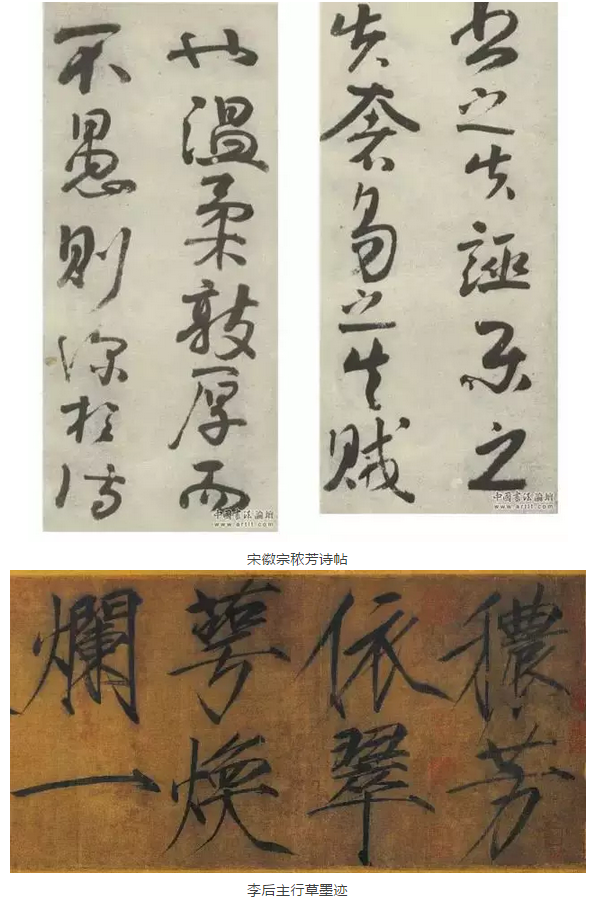 书之失誣樂之
失奢易之失賊
中國書法論壇
www.artit.com
也温柔敦厚而
不愚則深於詩
中國書法論壇
www.artit.com
宋徽宗秾芳诗帖
穠芳
依翠
萼煥
爛一
李后主行草墨迹